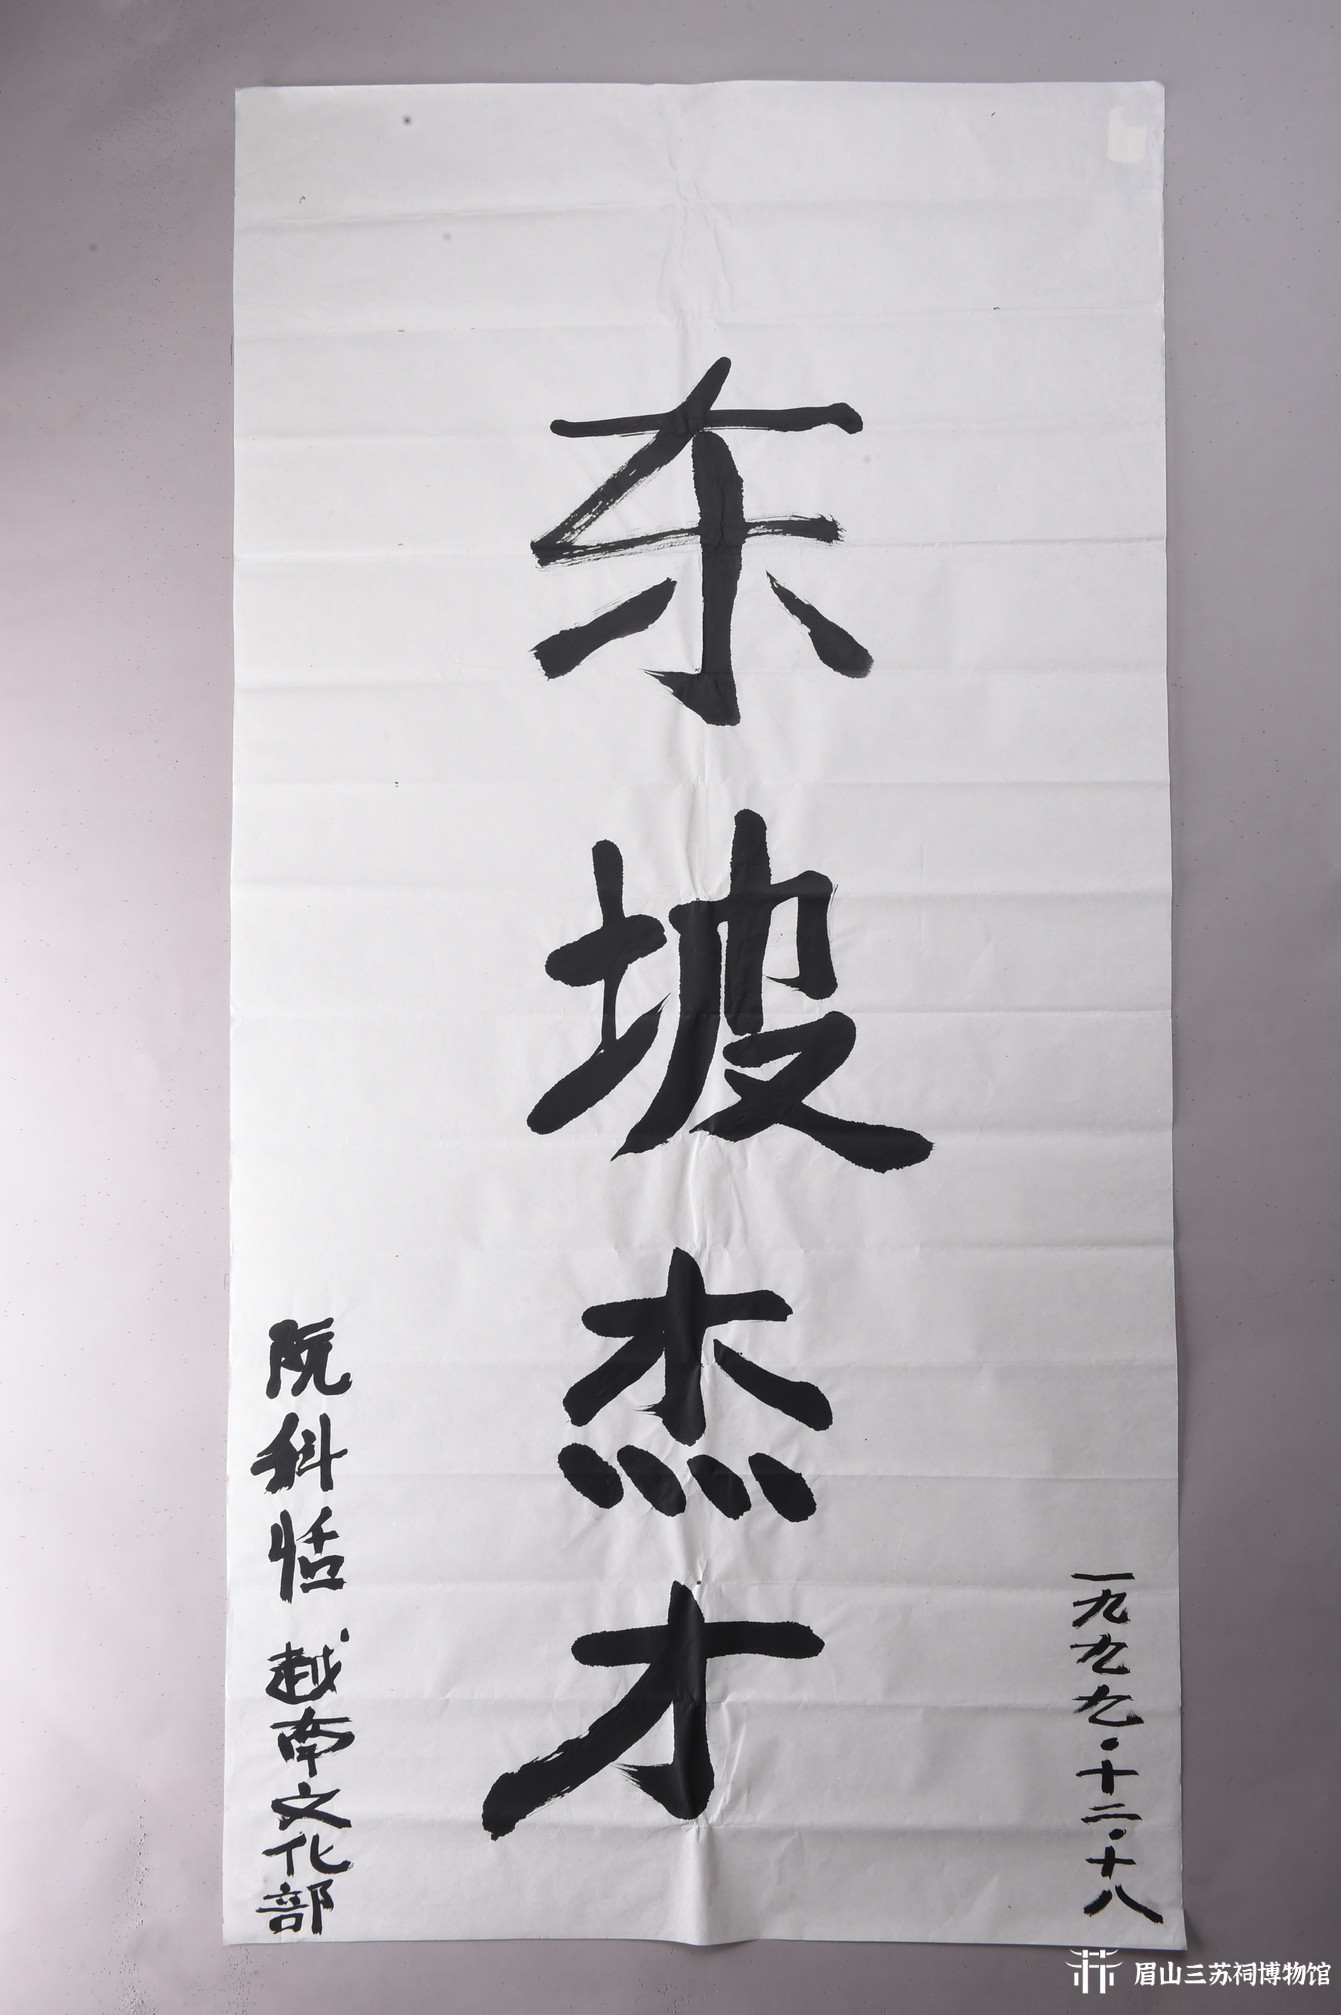 东坡杰才
一九九九·十二·十八
阮科恬 越南文化部
眉山三苏祠博物馆